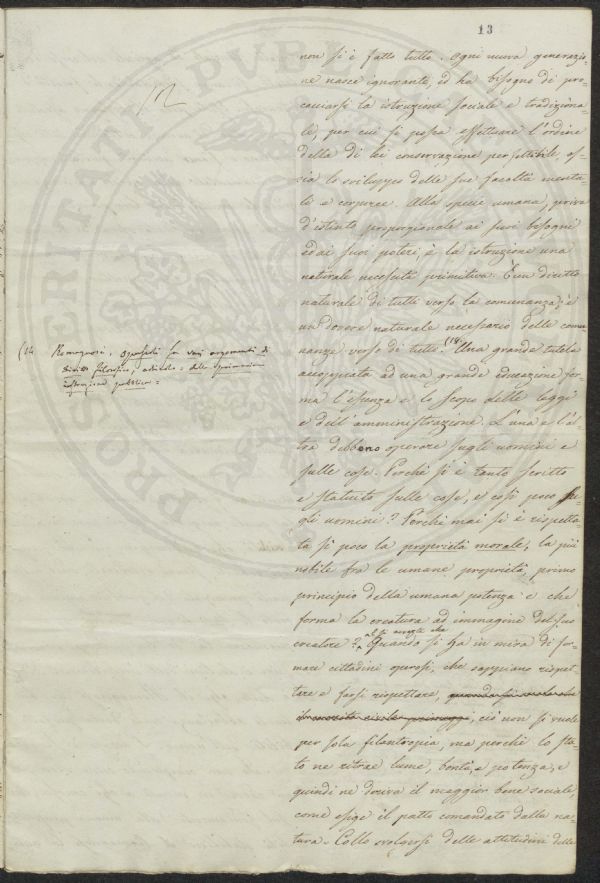 13
non si è fatto tutto. Ogni nuova generazio-
ne nasce ignorante, ed ha bisogno di pro-
cacciarsi la istruzione sociale e tradiziona-
le, per cui si possa effettuare l'ordine
della di lei conservazione perfettibile, os-
sia lo sviluppo delle sue facoltà menta-
li e corporee. Alla specie umana, priva
d'istinto proporzionale ai suoi bisogni
ed ai suoi poteri, è la istruzione una
naturale necessità primitiva. È un diritto
naturale di tutti verso la comunanza; è
un dovere naturale necessario delle comu-
nanze verso di tutti. (14 Una grande tutela
accoppiata ad una grande educazione for-
ma l'essenza e lo scopo delle leggi
e dell'amministrazione. L'una e l'al-
tra debbono operare sugli uomini e
sulle cose. Perché si è tanto scritto
e statuito sulle cose, e così poco su-
gli uomini? Perché mai si è rispetta-
ta sì poco la proprietà morale, la più
nobile fra le umane proprietà, primo
principio della umana potenza e che
forma la creatura ad immagine del suo
creatore? Quando si ha in mira di for-
mare cittadini operosi, che sappiano rispet-
tare e farsi rispettare, ciò non si vuole
per sola filantropia, ma perché lo sta-
to ne ritrae lume, bontà, e potenza, e
quindi ne deriva il maggior bene sociale,
come esige il patto comandato dalla na-
tura. Collo svolgersi delle attitudini delle
(14 Romagnosi, Opuscoli su vari argomenti di
diritto filosofico, articolo: della
istruzione pubblica =
PROSPERITATI PVBLICAE